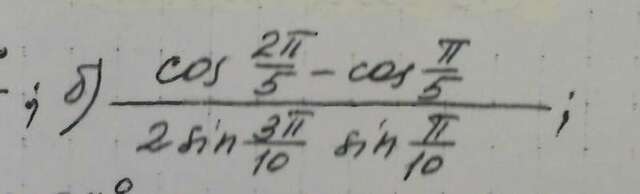 ; б) (cos 2π/5 − cos π/5) / (2 sin 3π/10 sin π/10) ;